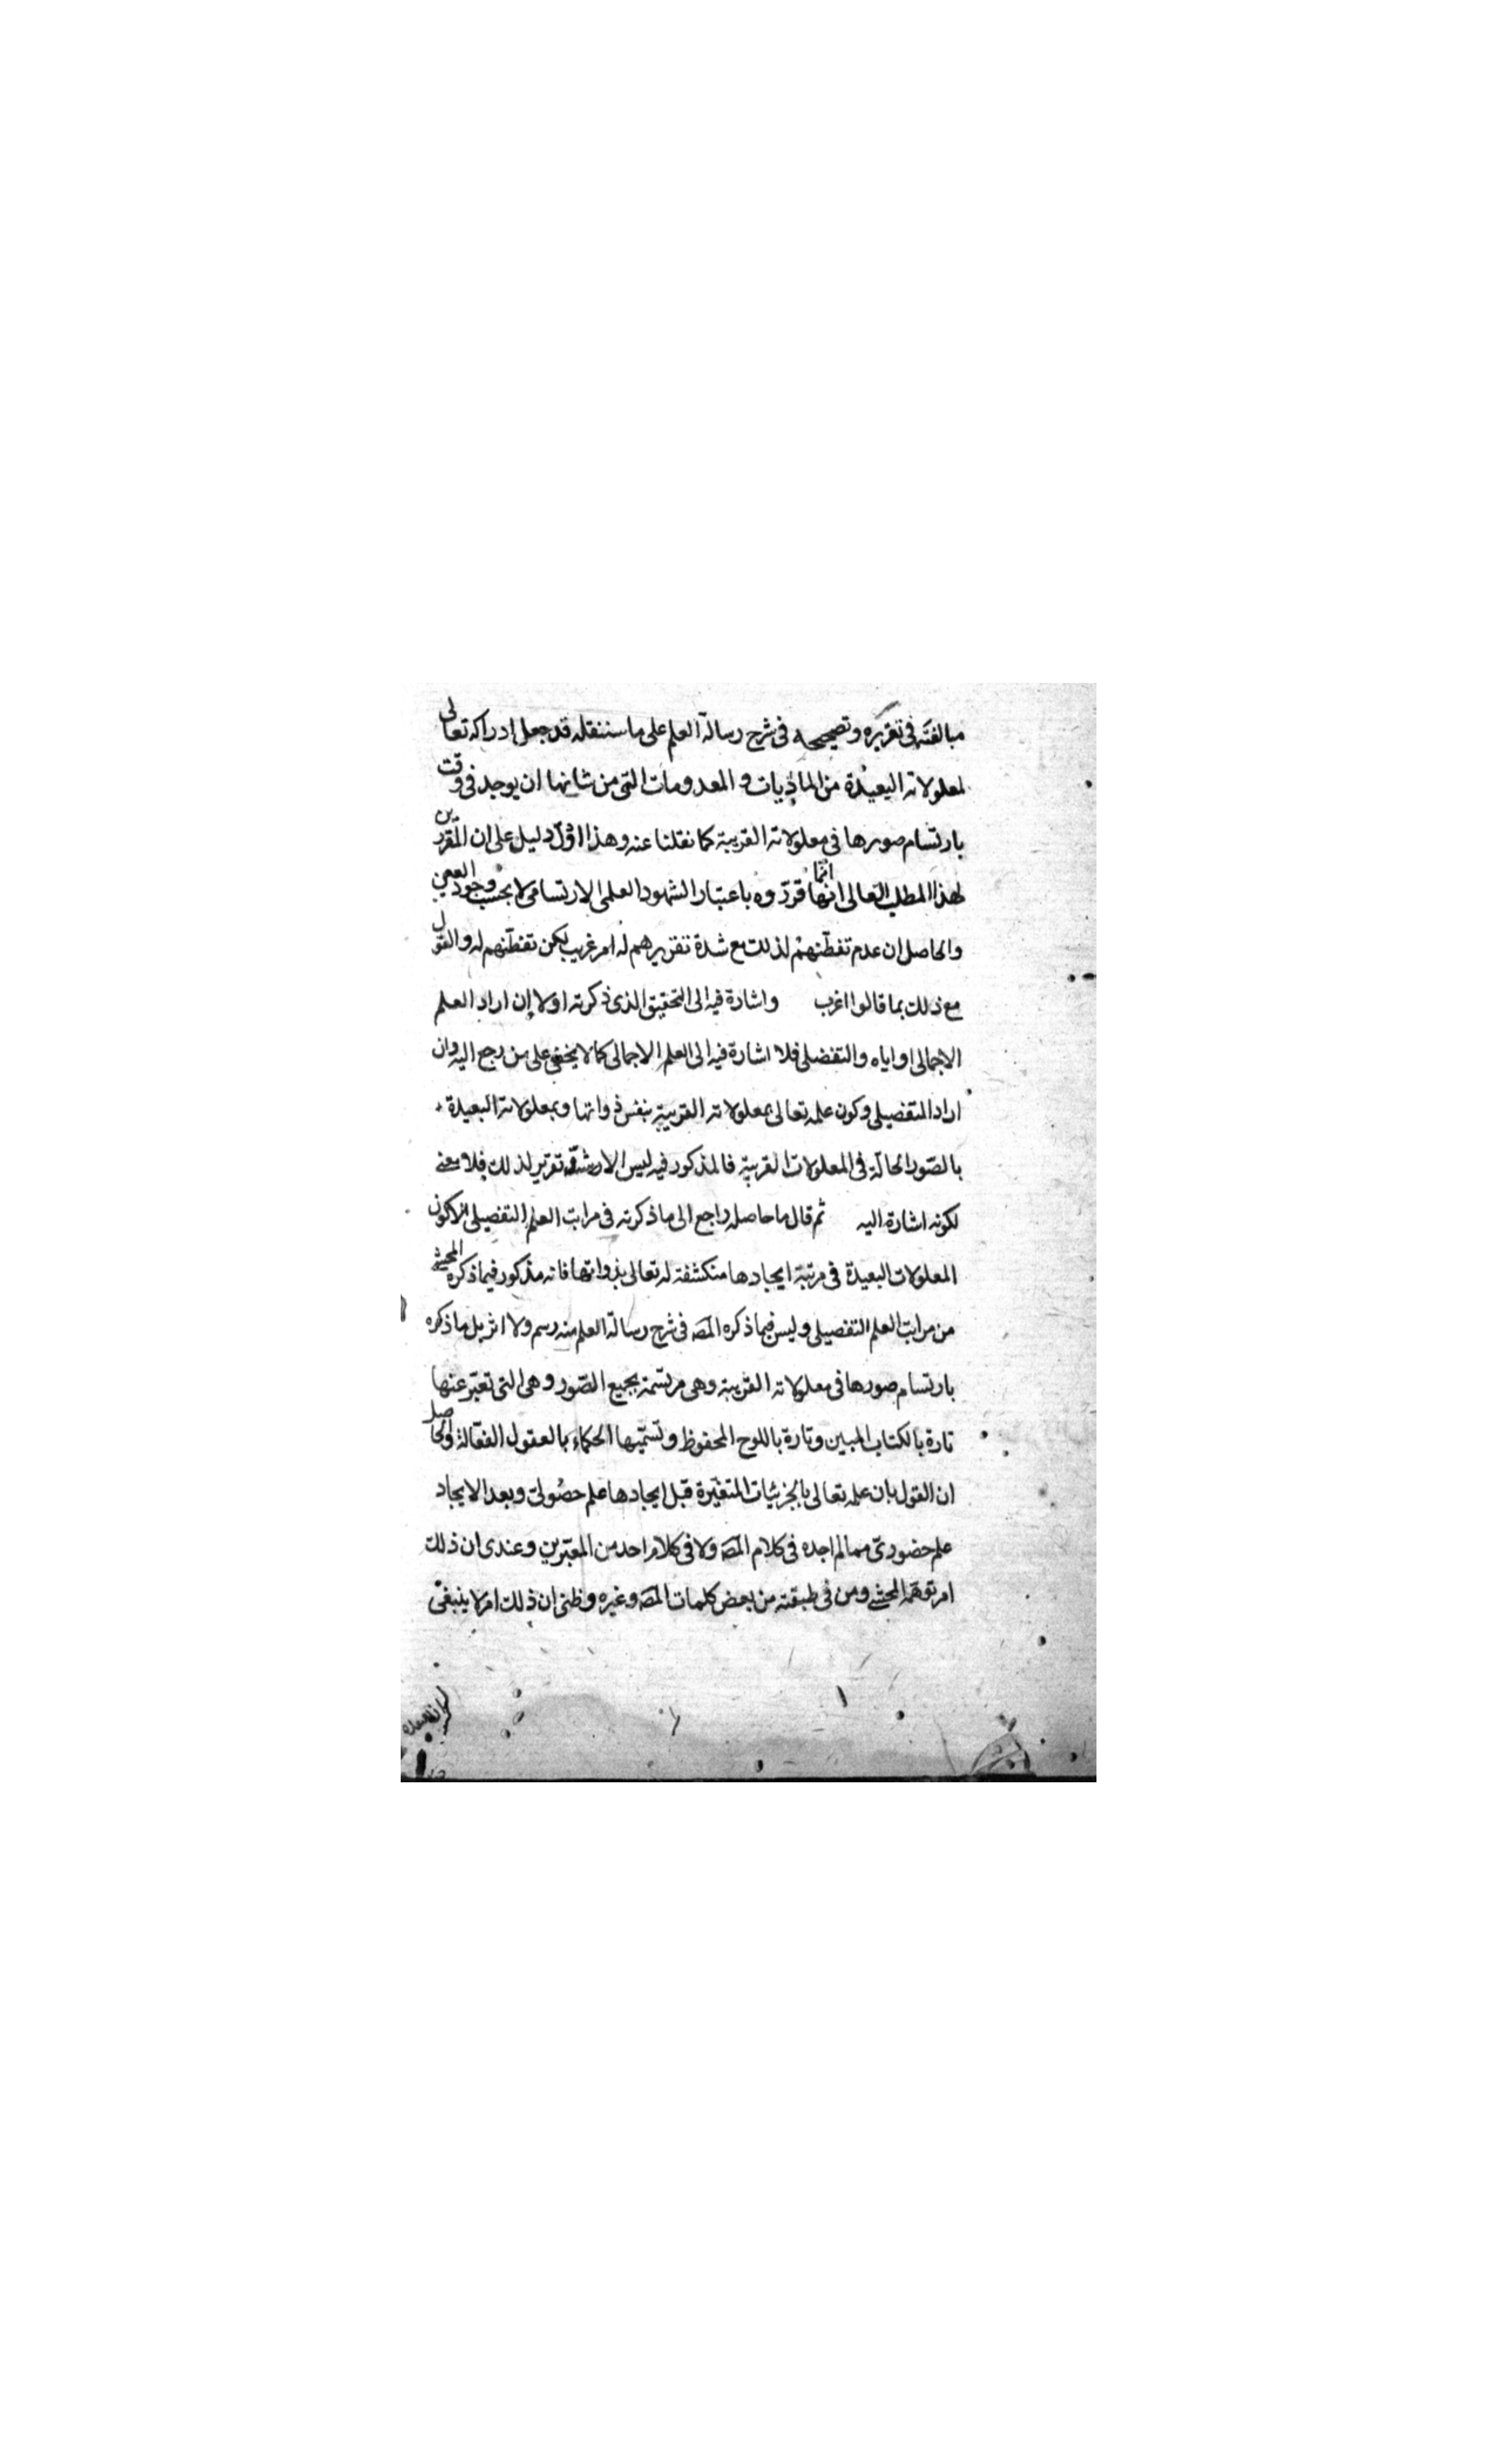 مبالغته فى تقريره وتصحيحه فى شرح رسالة العلم على ما سننقله قد جعل ادراكه تعالى
لمعلولاته البعيدة من الماديات و المعدومات التى من شانها ان يوجد فى وقت
بارتسام صورها فى معلولاته القريبة كما نقلنا عنه وهذا اوّل دليل على ان المقررين
لهذا المطلب العالى انما قرروه باعتبار الشهود العلمى الارتسامى لا بحسب وجود العينى
والحاصل ان عدم تفطّنهم لذلك مع شدة تقريرهم له امر غريب لكن تفطّنهم له والقول
مع ذلك بما قالوا اغرب واشارة فيه الى التحقيق الذى ذكرته اولا إن اراد العلم
الاجمالى او اياه والتفضلى فلا اشارة فيه الى العلم الاجمالى كما لا يخفى على من رجع اليه وان
اراد التفصيلى وكون علمه تعالى بمعلولاته القريبة بنفس ذواتها وبمعلولاته البعيدة
بالصّور الحالّة فى المعلولات القريبة فالمذكور فيه ليس الا تقرير لذلك فلا معنى
لكونه اشارة اليه ثم قال ما حاصله راجع الى ما ذكرته فى مراتب العلم التفصيلى الا كون
المعلولات البعيدة فى مرتبة ايجادها منكشفة له تعالى بذواتها فانه مذكور فيما ذكره المحشى
من مراتب العلم التفصيلى وليس فيما ذكره المصَ فى شرح رسالة العلم منه رسم ولا اثر بل ما ذكره
بارتسام صورها فى معلولاته القريبة وهى مرتسمة بجميع الصّور وهى التى تعبّر عنها
تارة بالكتاب المبين وتارة باللوح المحفوظ وتسمّيها الحكماء بالعقول الفعّالة والحاصل
ان القول بان علمه تعالى بالجزئيات المتغيّرة قبل ايجادها علم حصُولىّ وبعد الايجاد
علم حضورىّ مما لم اجده فى كلام المصَ ولا فى كلام احد من المعتبرين وعندى ان ذلك
امر توهّمه المحشى ومن فى طبقته من بعض كلمات المصَ وغيره وظنى ان ذلك امر لا ينبغى